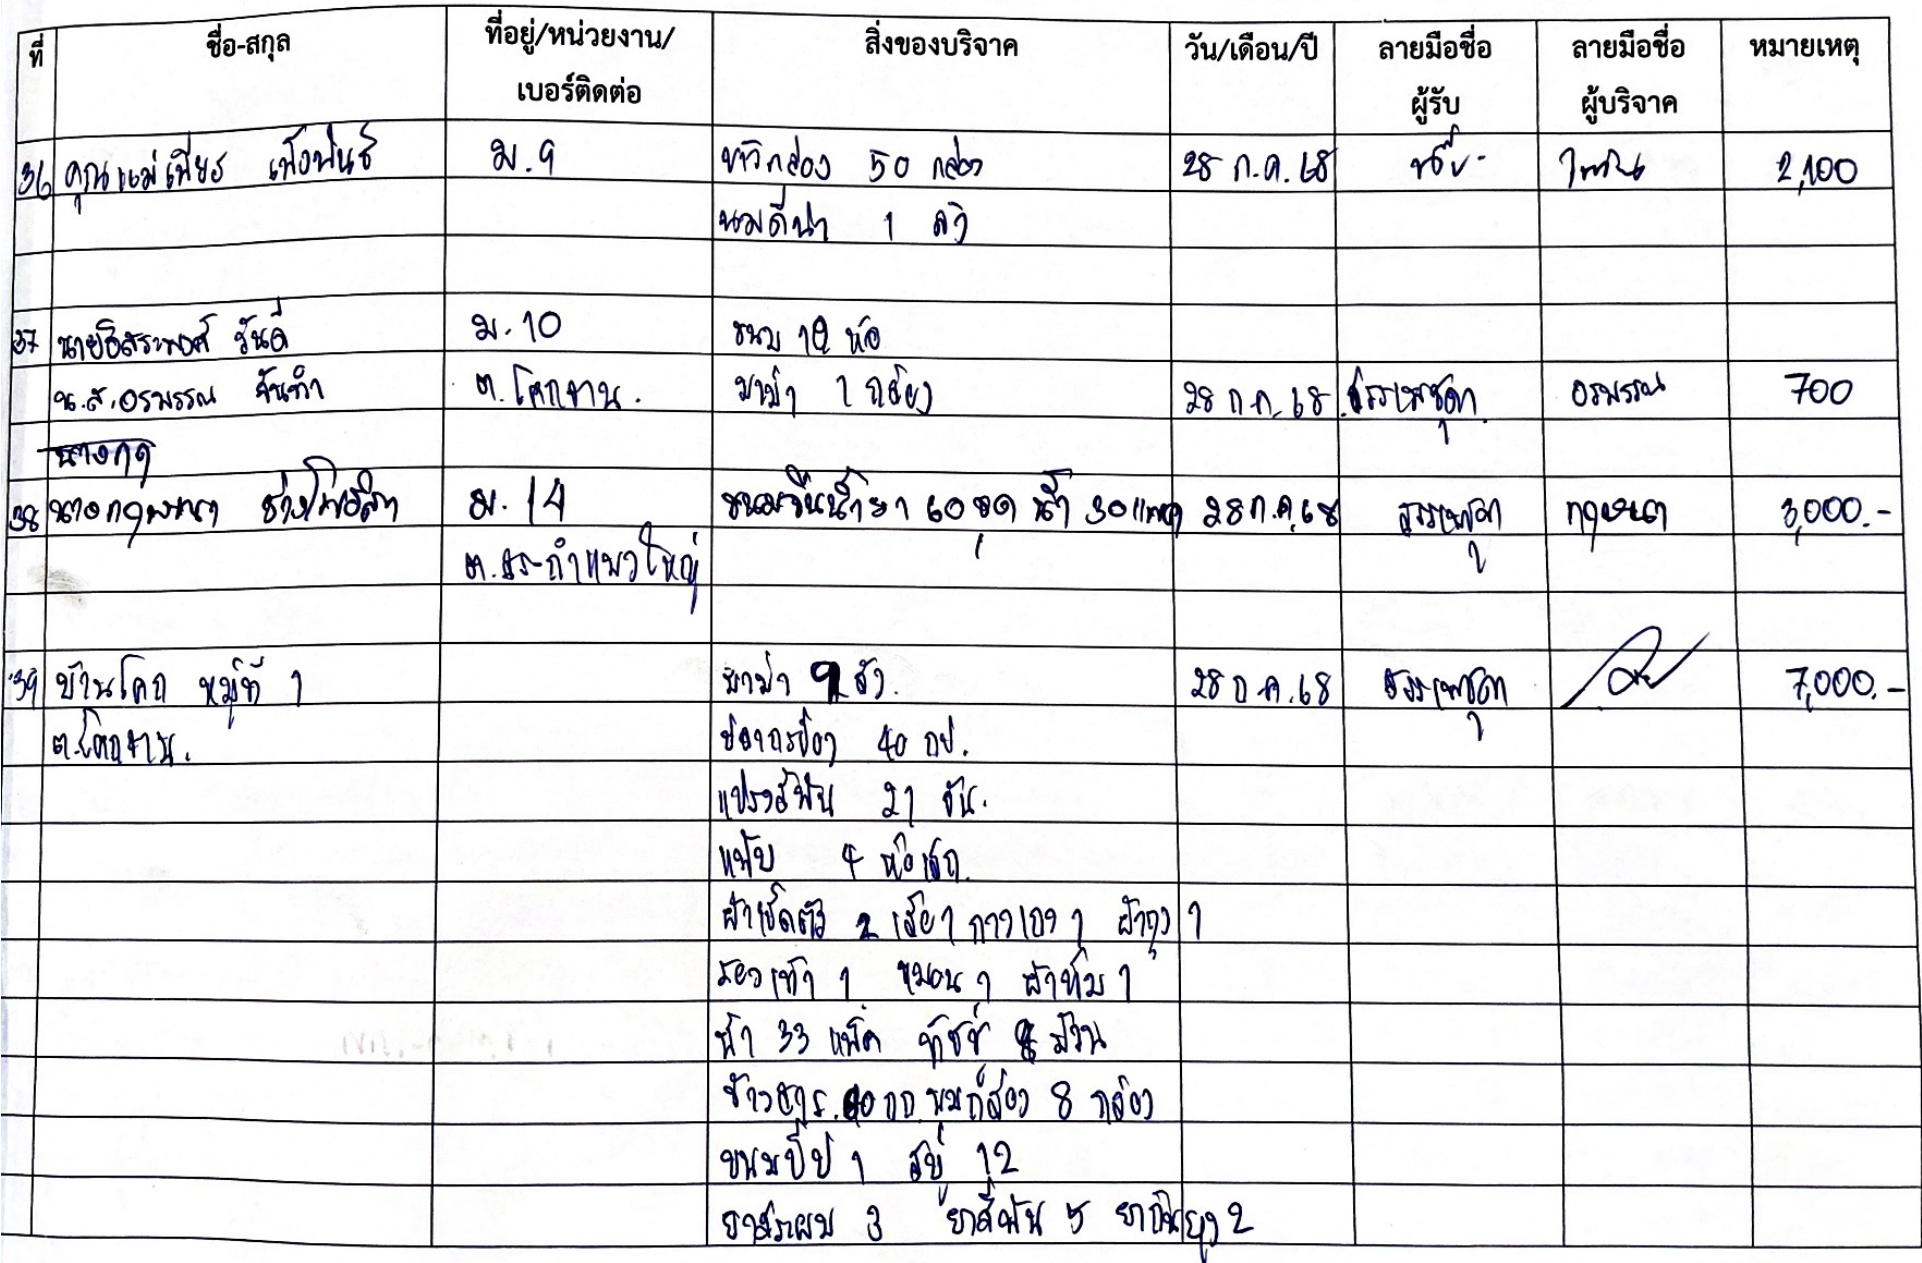 ที่ ชื่อ-สกุล ที่อยู่/หน่วยงาน/ สิ่งของบริจาค วัน/เดือน/ปี ลายมือชื่อ ลายมือชื่อ หมายเหตุ
เบอร์ติดต่อ ผู้รับ ผู้บริจาค
36 คุณแม่เพียร ม.9 ข้าวกล่อง 50 กล่อง 28 ก.ค.68 2,100
นมดีน่า 1 ลัง
37 นายอิสระพงศ์ วันดี ม.10 ขนม 12 ห่อ
น.ส.อรพรรณ จันทำ ต.โคกจาน. มาม่า 1 กล่อง 28 ก.ค.68 อรพรรณ 700
นางกฤ
38 นางกฤษณา ม.14 ขนมจีนน้ำยา 60 ชุด น้ำ 30 แพค 28 ก.ค.68 กฤษณา 3,000.-
ต.สระกำแพงใหญ่
39 บ้านโคก หมู่ที่ 1 มาม่า 9 ลัง. 28 ก.ค.68 7,000.-
ต.โคกจาน. ปลากระป๋อง 40 กป.
แปรงสีฟัน 21 อัน.
แฟ้บ 4 ห่อเล็ก
ผ้าเช็ดตัว 2 เสื้อ 1 กางเกง 1 ผ้าถุง 1
รองเท้า 1 หมอน 1 ผ้าห่ม 1
น้ำ 33 แพ็ค ทิชชู่ 8 ม้วน
ข้าวสาร 40 กก นมกล่อง 8 กล่อง
ขนมปี๊ป 1 สบู่ 12
ยาสระผม 3 ยาสีฟัน 5 ยากันยุง 2